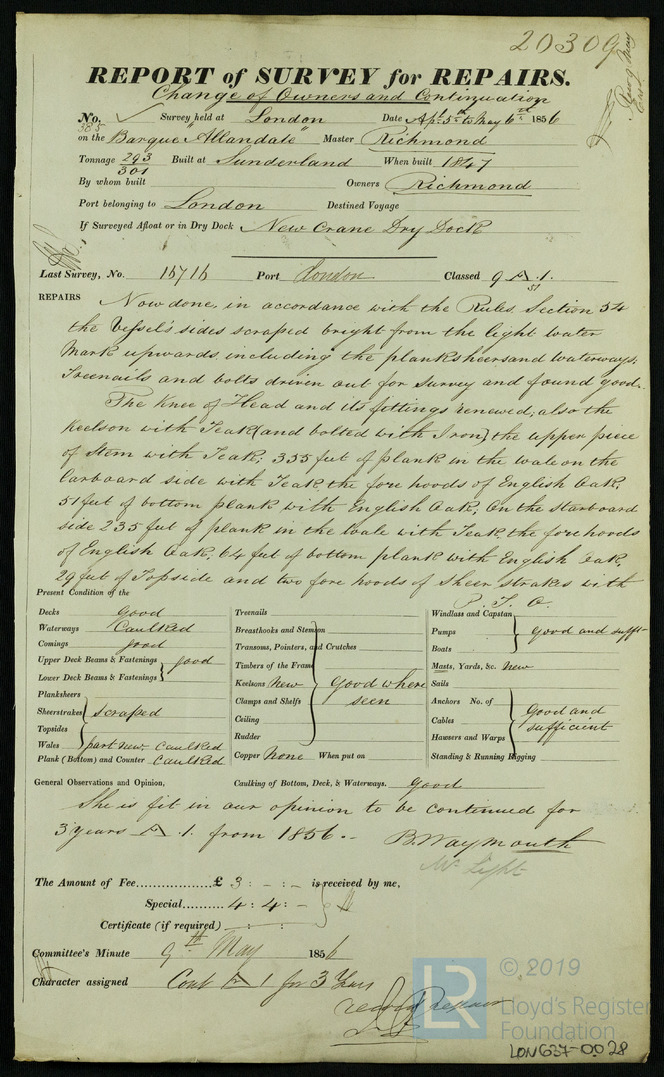 20309
REPORT of SURVEY for REPAIRS.
Change of Owners and Continuation
No. 385 Survey held at London Date Apl. 5th to May 6th 1856
on the Barque "Allandale" Master Richmond
Tonnage 293/301 Built at Sunderland When built 1847
By whom built Owners Richmond
Port belonging to London Destined Voyage
If Surveyed Afloat or in Dry Dock New Crane Dry Dock
Last Survey, No. 15716 Port London Classed 9 A.1.
51
REPAIRS Now done, in accordance with the Rules, Section 54
the Vessel's sides scraped bright from the light water
Mark upwards, including the planksheers and waterways.
Treenails and bolts driven out for survey and found good.
The Knee of Head and its fittings renewed; also the
Keelson with Teak (and bolted with Iron) the upper piece
of Stem with Teak; 335 feet of plank in the wale on the
Larboard side with Teak, the fore hoods of English Oak,
51 feet of bottom plank with English Oak. On the starboard
side 235 feet of plank in the wale with Teak, the fore hoods
of English Oak, 64 feet of bottom plank with English Oak,
29 feet of Topside and two fore hoods of Sheer Strakes with
P. T. O.
Present Condition of the
Decks good
Waterways Caulked
Comings good
Upper Deck Beams & Fastenings } good
Lower Deck Beams & Fastenings
Planksheers
Sheerstrakes } scraped
Topsides
Wales part new Caulked
Plank (Bottom) and Counter Caulked
Treenails
Breasthooks and Stemson
Transoms, Pointers, and Crutches
Timbers of the Frame
Keelsons New } Good where
Clamps and Shelfs seen
Ceiling
Rudder
Copper None When put on
Windlass and Capstan
Pumps } good and sufft
Boats
Masts, Yards, &c. new
Sails
Anchors No. of } Good and
Cables sufficient
Hawsers and Warps
Standing & Running Rigging
General Observations and Opinion, Caulking of Bottom, Deck, & Waterways. good
She is fit in our opinion to be continued for
3 years A.1. from 1856.- B. Waymouth
Mr Light
The Amount of Fee................£ 3 : - : - is received by me,
Special......... 4 : 4 : -
Certificate (if required)
Committee's Minute 9th May 1856
Character assigned Cont A 1 for 3 Years
© 2019
LR Lloyd's Register
Foundation
LON637-0028